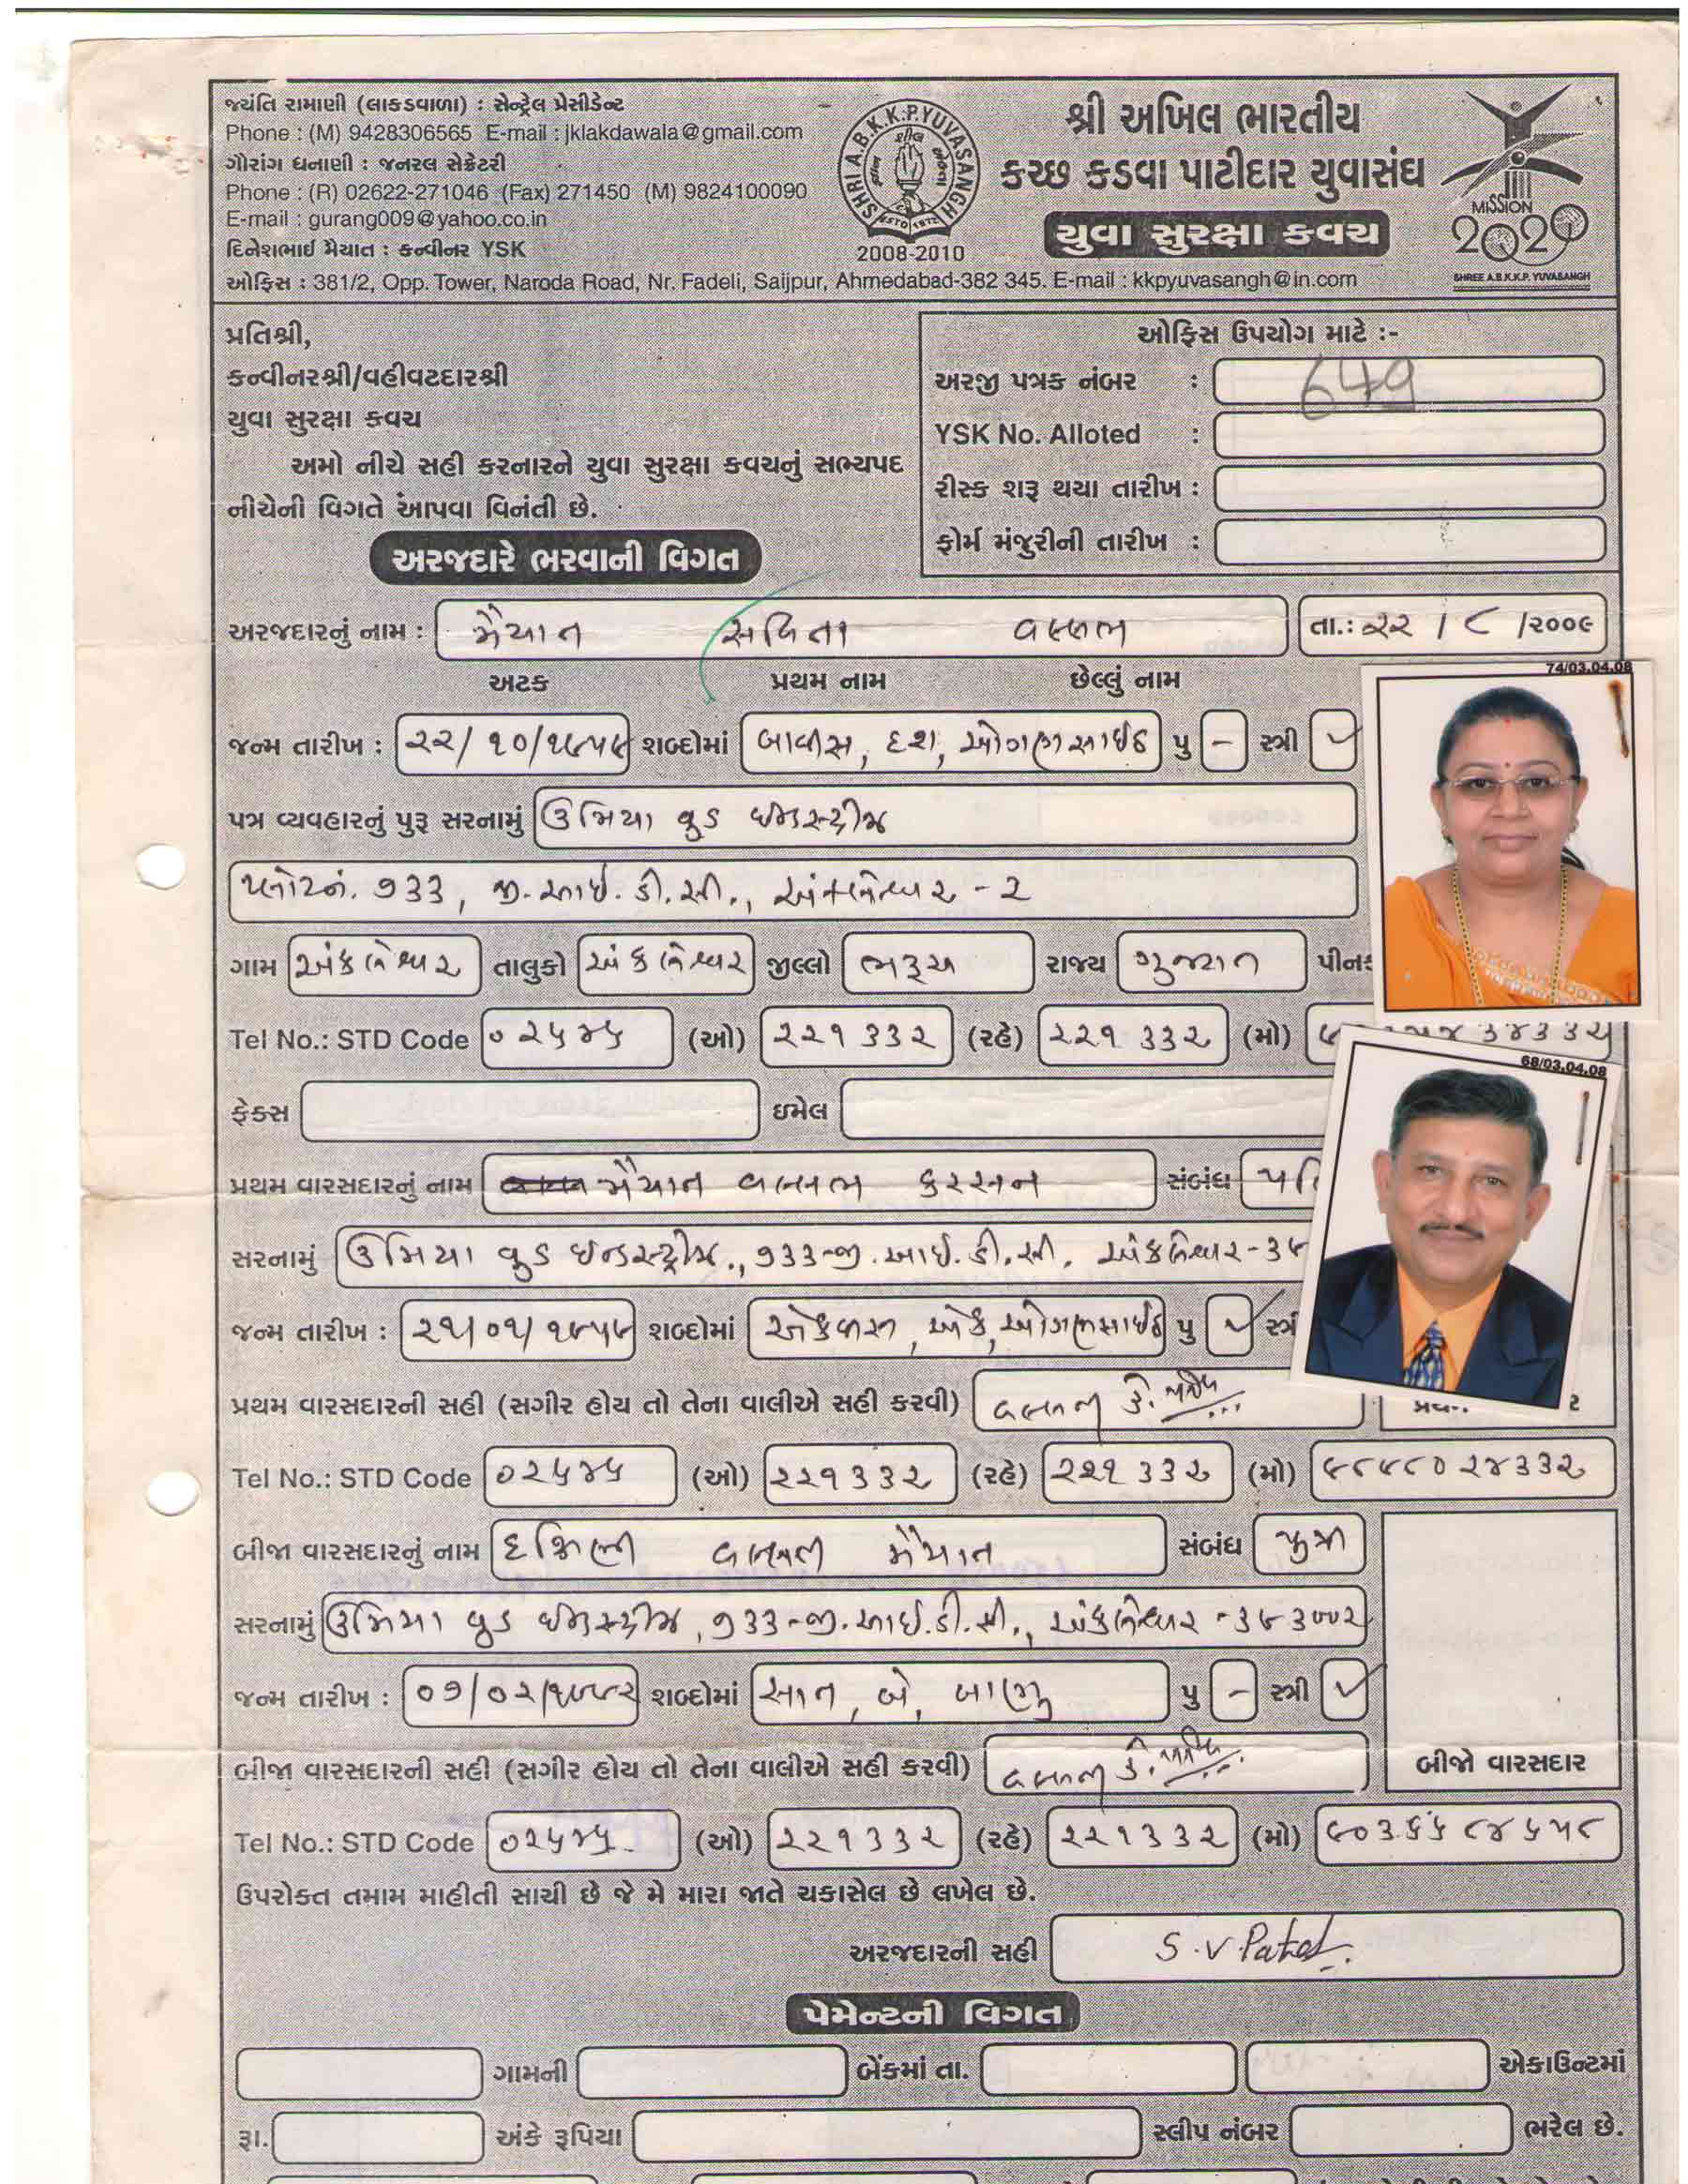 જયંતિ રામાણી (લાકડવાળા) : સેન્ટ્રેલ પ્રેસીડેન્ટ
Phone : (M) 9428306565 E-mail : jklakdawala@gmail.com
ગૌરાંગ ધનાણી : જનરલ સેક્રેટરી
Phone : (R) 02622-271046 (Fax) 271450 (M) 9824100090
E-mail : gurang009@yahoo.co.in
દિનેશભાઈ મૈયાત : કન્વીનર YSK
SHRI A.B.K.K.P. YUVASANGH
ESTD 1972
2008-2010
શ્રી અખિલ ભારતીય
કચ્છ કડવા પાટીદાર યુવાસંઘ
યુવા સુરક્ષા કવચ
MISSION
2020
SHREE A.B.K.K.P. YUVASANGH
ઓફિસ : 381/2, Opp. Tower, Naroda Road, Nr. Fadeli, Saijpur, Ahmedabad-382 345. E-mail : kkpyuvasangh@in.com
પ્રતિશ્રી,
કન્વીનરશ્રી/વહીવટદારશ્રી
યુવા સુરક્ષા કવચ
અમો નીચે સહી કરનારને યુવા સુરક્ષા કવચનું સભ્યપદ
નીચેની વિગતે આપવા વિનંતી છે.
ઓફિસ ઉપયોગ માટે :-
અરજી પત્રક નંબર : 649
YSK No. Alloted :
રીસ્ક શરૂ થયા તારીખ :
ફોર્મ મંજુરીની તારીખ :
અરજદારે ભરવાની વિગત
અરજદારનું નામ : મૈયાત સવિતા વલ્લભ તા.: ૨૨ / ૮ /૨૦૦૯
અટક પ્રથમ નામ છેલ્લું નામ
74/03.04.08
જન્મ તારીખ : ૨૨/૧૦/૧૯૫૯ શબ્દોમાં બાવીસ, દશ, ઓગણસાઈઠ પુ - સ્ત્રી ✓
પત્ર વ્યવહારનું પુરૂ સરનામું ઉમિયા વુડ ઈન્ડસ્ટ્રીઝ
પ્લોટનં. ૭૩૩, જી.આઈ.ડી.સી., અંકલેશ્વર - ૨
ગામ અંકલેશ્વર તાલુકો અંકલેશ્વર જીલ્લો ભરૂચ રાજ્ય ગુજરાત
Tel No.: STD Code ૦૨૬૪૬ (ઓ) ૨૨૧૩૩૨ (રહે) ૨૨૧૩૩૨ (મો)
68/03.04.08
ફેક્સ ઇમેલ
પ્રથમ વારસદારનું નામ મૈયાત વલ્લભ કરસન સંબંધ
સરનામું ઉમિયા વુડ ઈન્ડસ્ટ્રીઝ., ૭૩૩-જી.આઈ.ડી.સી. અંકલેશ્વર-૩૯
જન્મ તારીખ : ૨૧/૦૧/૧૯૫૯ શબ્દોમાં એકવીસ, એક, ઓગણસાઈઠ પુ ✓
પ્રથમ વારસદારની સહી (સગીર હોય તો તેના વાલીએ સહી કરવી) વલ્લભ કે. પટેલ
Tel No.: STD Code ૦૨૬૪૬ (ઓ) ૨૨૧૩૩૨ (રહે) ૨૨૧૩૩૨ (મો) ૯૮૯૮૦૨૪૩૩૨
બીજા વારસદારનું નામ વલ્લભ મૈયાત સંબંધ પુત્રી
સરનામું ઉમિયા વુડ ઈન્ડસ્ટ્રીઝ, ૭૩૩-જી.આઈ.ડી.સી., અંકલેશ્વર -૩૯૩૦૦૨
જન્મ તારીખ : ૦૭/૦૨/૧૯૯૨ શબ્દોમાં સાત, બે, બાણુ પુ - સ્ત્રી ✓
બીજા વારસદારની સહી (સગીર હોય તો તેના વાલીએ સહી કરવી) વલ્લભ કે. પટેલ
બીજો વારસદાર
Tel No.: STD Code ૦૨૬૪૬ (ઓ) ૨૨૧૩૩૨ (રહે) ૨૨૧૩૩૨ (મો)
ઉપરોક્ત તમામ માહીતી સાચી છે જે મે મારા જાતે ચકાસેલ છે લખેલ છે.
અરજદારની સહી S.V.Patel
પેમેન્ટની વિગત
ગામની બેંકમાં તા. એકાઉન્ટમાં
રૂા. અંકે રૂપિયા સ્લીપ નંબર ભરેલ છે.